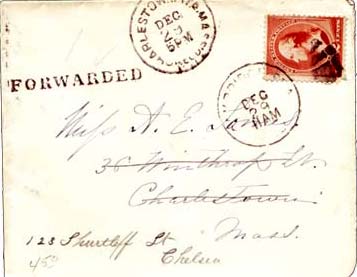 CHARLESTOWN
DEC
5 PM
FORWARDED
DEC
29
11AM
Miss A. E.
36 Winthrop St.
Charlestown
Mass.
123 Shurtleff St
Chelsea